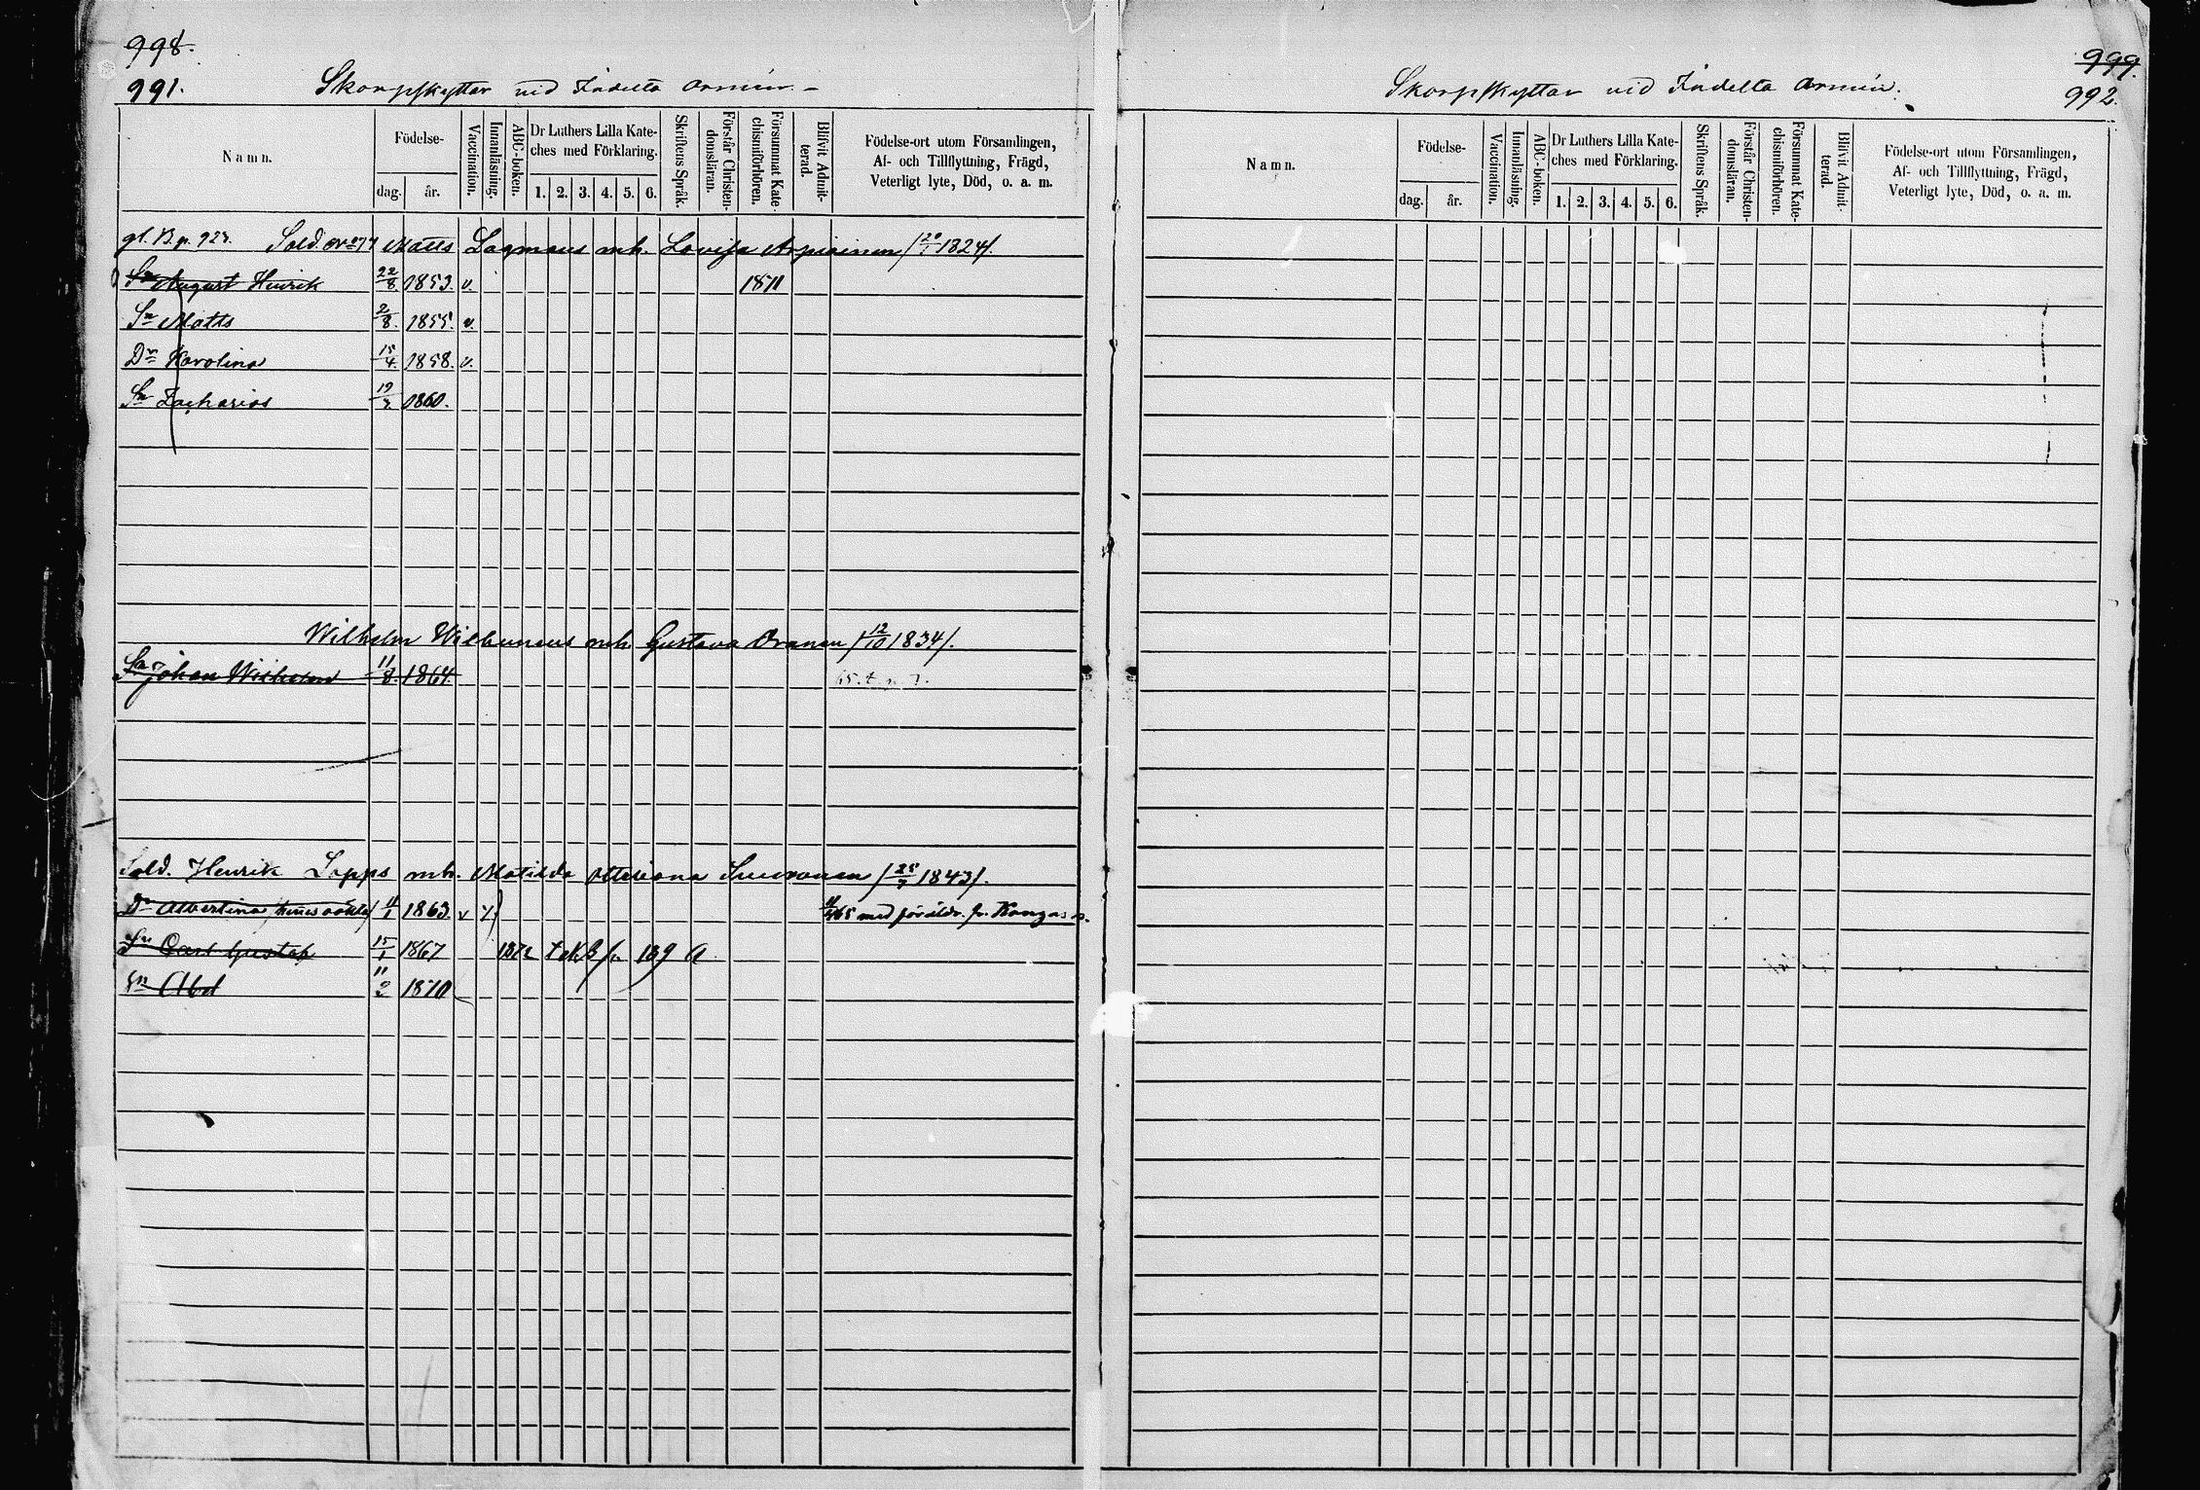 998.
991.
Skarpskyttar vid Indelta Armén.
Namn.
Födelse-
dag.
år.
Vaccination.
Innanläsning.
ABC-boken.
Dr Luthers Lilla Kate-
ches med Förklaring.
1. 2. 3. 4. 5. 6.
Skriftens Språk.
Förstår Christen-
domsläran.
Försummat Kate-
chismiförhören.
Blifvit Admit-
terad.
Födelse-ort utom Församlingen,
Af- och Tillflyttning, Frägd,
Veterligt lyte, Död, o. a. m.
gl. B. p. 923. Sold. Matts Lagmans enk. Lovisa Arpiainen /20/1 1824/.
Sn August Henrik 22/8 1853. v. 1871
Sn Matts 2/8. 1855. v.
Dr Karolina 15/4. 1858. v.
Sn Zacharias 1860.
Wilhelm Wilhunens enk. Gustava Oranen /12/10 1834/.
Sn Johan Wilhelm 11/8. 1864.
Sold. Henrik Lapps enk. Matilda Suuronen 1843/.
Dr Albertina 11/1 1863. v
med föräldr. fr. Kangas
Sn Carl Gustaf 15/1 1867 1872 189 a
Sn Abel 11/2 1870
999.
992.
Skarpskyttar vid Indelta Armén.
Namn.
Födelse-
dag.
år.
Vaccination.
Innanläsning.
ABC-boken.
Dr Luthers Lilla Kate-
ches med Förklaring.
1. 2. 3. 4. 5. 6.
Skriftens Språk.
Förstår Christen-
domsläran.
Försummat Kate-
chismiförhören.
Blifvit Admit-
terad.
Födelse-ort utom Församlingen,
Af- och Tillflyttning, Frägd,
Veterligt lyte, Död, o. a. m.